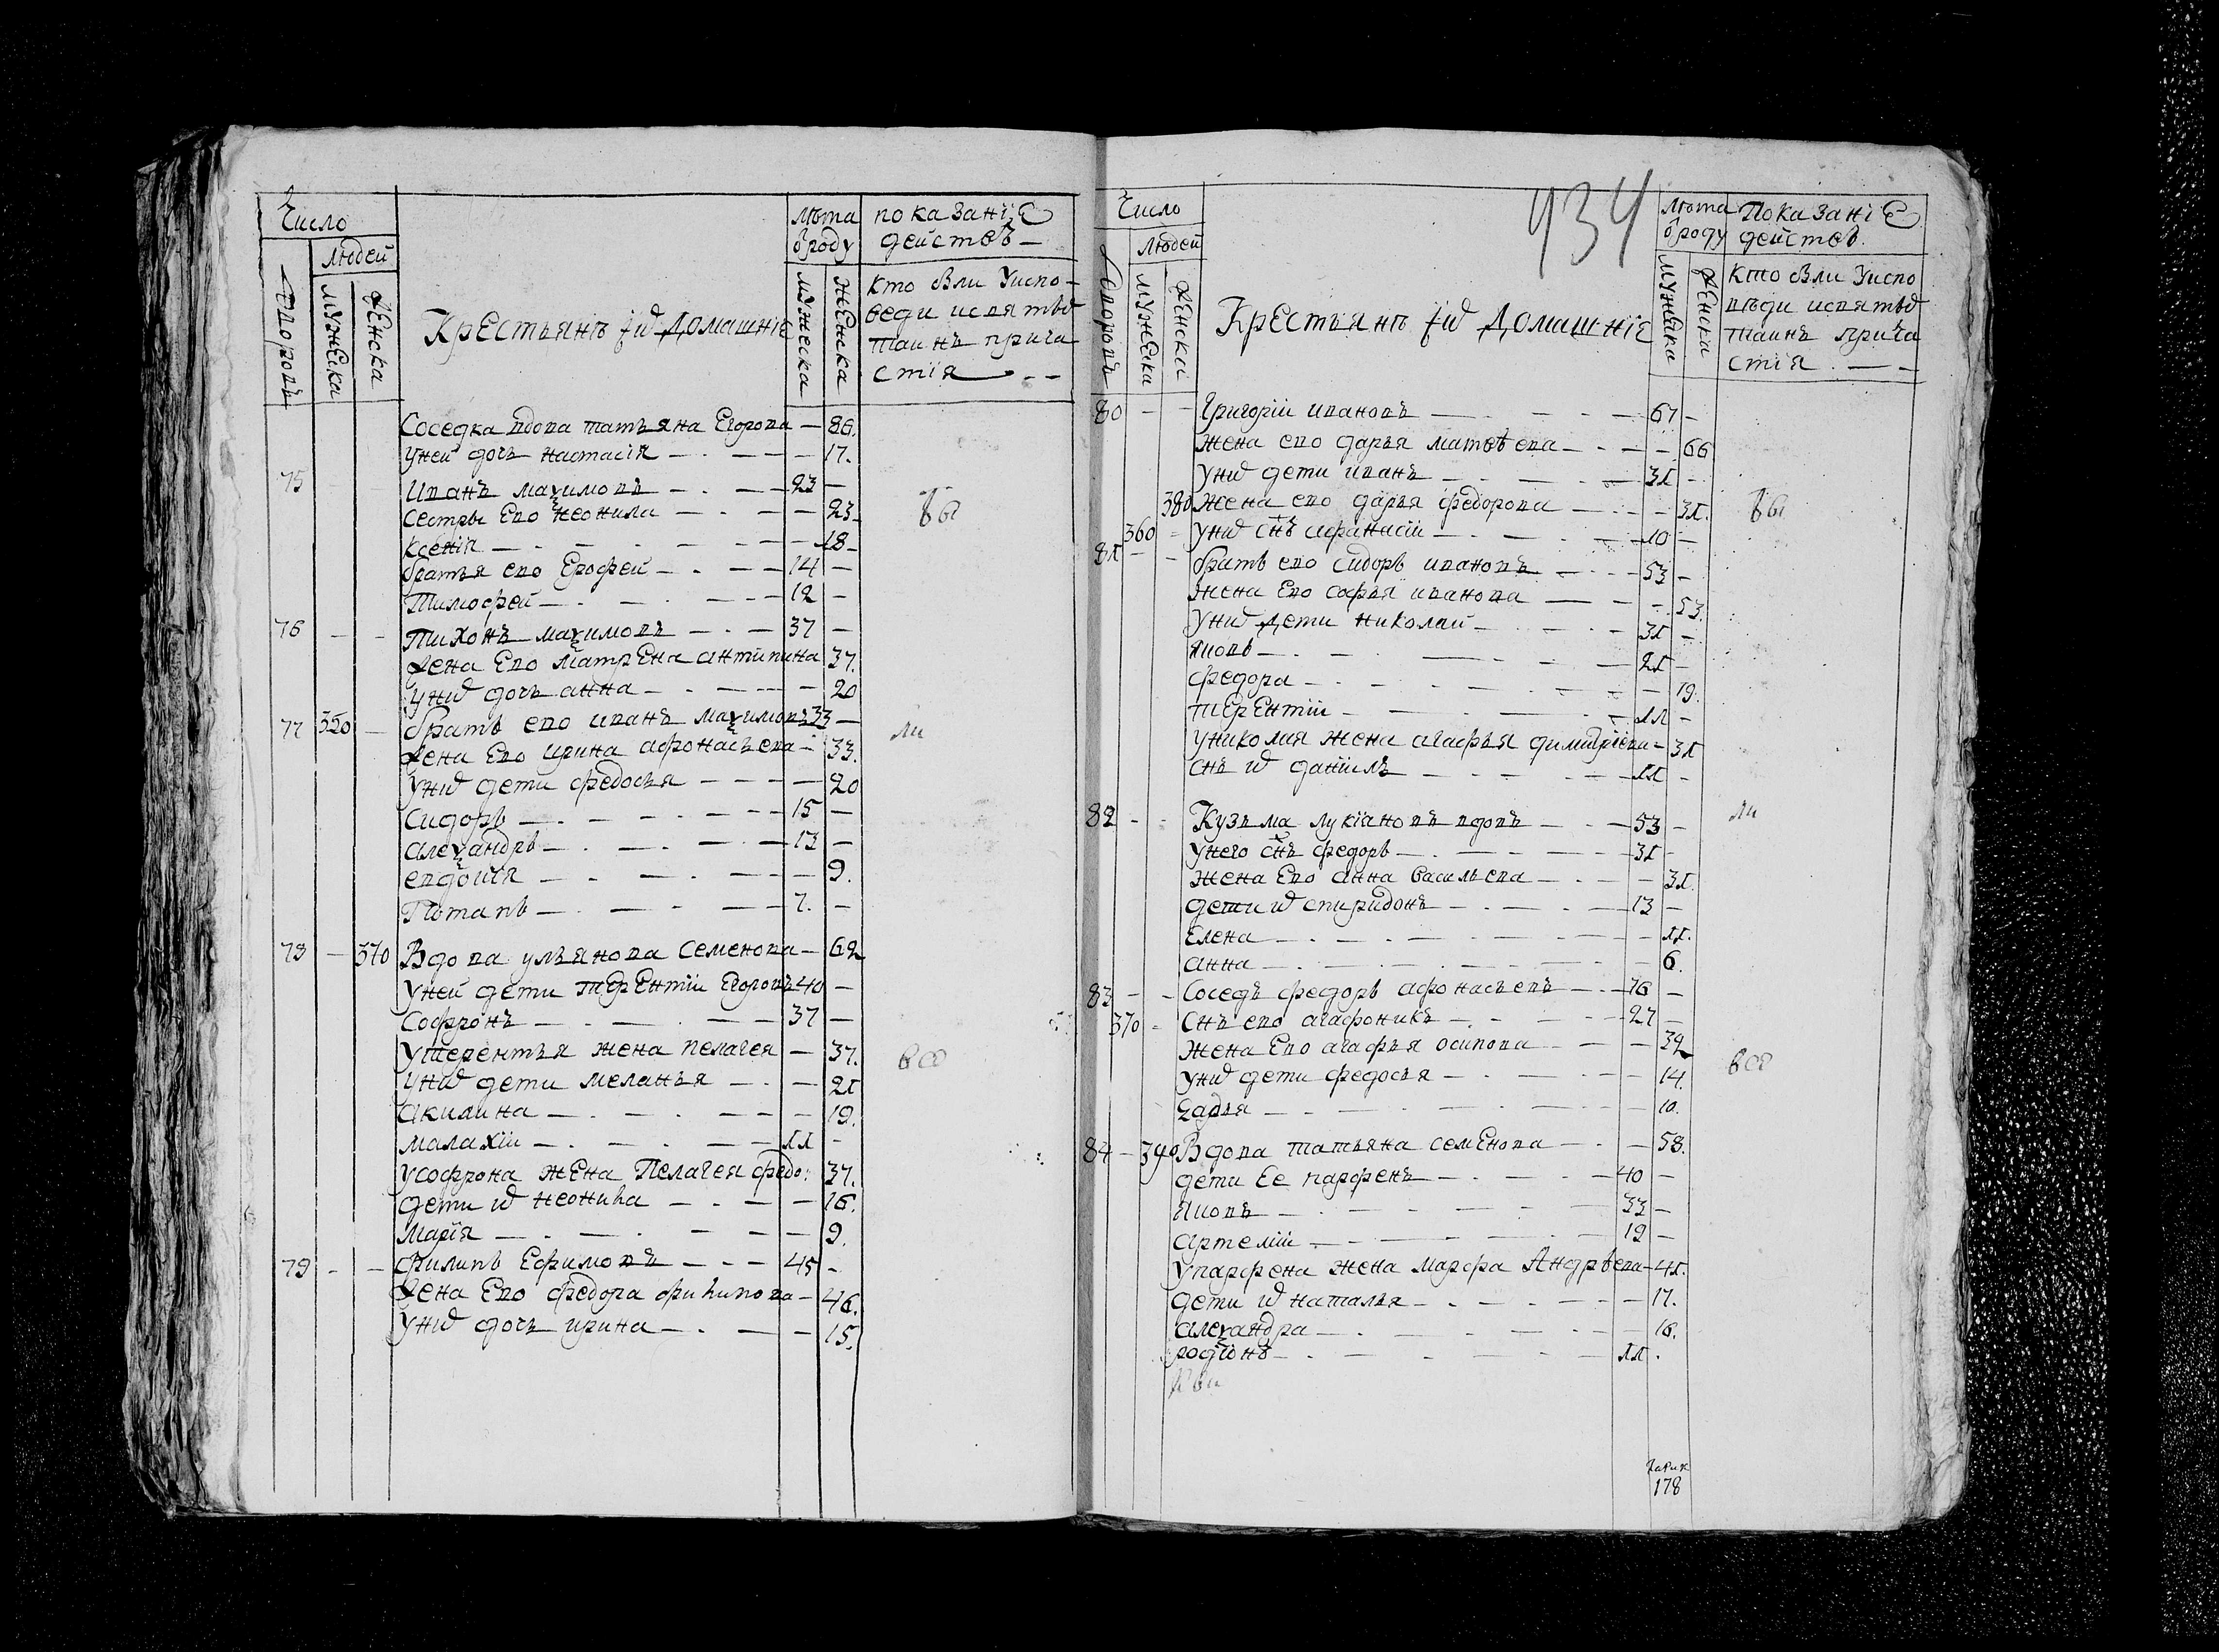 Число
людей
Дворовъ
Мужеска
Женска
Крестьянъ ихъ домашніе
лѣта
ѿ роду
мужеска
женска
показаніе
действъ
кто были у испо-
веди и святыхъ
таинъ прича
стія
Соседка вдова татьяна Егорова — 86.
У ней дочь настасія — 17.
75 Иванъ маѯимовъ — 23 —
сестры Ево неонила — 23
Ксенія — 18
братья ево Ерофей — 14 —
Тимофей — 12 —
76 — — Тихонъ маѯимовъ — 37 —
Жена Ево матрена антипина 37.
У нихъ дочь анна — 20
77 350 — братъ ево иванъ маѯимовъ 33 —
Жена Ево ирина афонасьева — 33.
У нихъ дети федосья — 20
Сидоръ — 15 —
Алеѯандръ — 13 —
евдокія — 9.
Потапъ — 7. —
78 — 370 Вдова ульянова Семенова — 62
У ней дети терентіи Егоровъ 40 —
Софронъ — 37 —
У терентья жена пелагея — 37.
У нихъ дети меланья — 21
Акилина — 19.
малахіи — 11 —
У софрона жена Пелагея федо: 37.
дети ихъ неонила — 16.
Марія — 9.
79 — — Филипъ Ефимовъ — 45 —
Жена Ево федора филипова — 46.
У нихъ дочь ирина — 15.
бы
ли
всѣ
934
Число
людей
Дворовъ
Мужеска
Женска
Крестьянъ ихъ домашніе
лѣта
ѿ роду
мужеска
женска
Показаніе
действъ.
кто были у испо
вѣди и святыхъ
таинъ прича
стія
80 — — Григоріи ивановъ — 67 —
Жена ево дарья матвѣева — 66
У нихъ дети иванъ — 31 —
380 Жена ево дарья федорова — 31.
360 — У нихъ снъ афанасіи — 10 —
81 — — братъ ево Сидоръ ивановъ — 53 —
Жена Ево софья иванова — 53.
У нихъ дети николаи — 31 —
Яковъ — 21 —
федора — 19.
терентіи — 11 —
У николая жена агафья димитріева — 31
снъ ихъ даніилъ — 11 —
82 — — Кузьма лукіановъ вдовъ — 53 —
У него снъ федоръ — 31 —
Жена Ево анна васильева — 31.
дети ихъ спиридонъ — 13 —
Елена — 11.
анна — 6.
83 — — Соседъ федоръ афонасьевъ — 76 —
370 — Снъ ево агафоникъ — 27 —
Жена Ево агафья осипова — 32
У нихъ дети федосья — 14.
дарья — 10.
84 — 390 Вдова татьяна семенова — 58.
дети Ее парфенъ — 40 —
Яковъ — 33 —
Артеміи — 19 —
У парфена жена марфа Андрѣева — 41.
дети ихъ наталья — 17.
Алеѯандра — 16.
родіонъ — 11.
бы
ли
всѣ
178